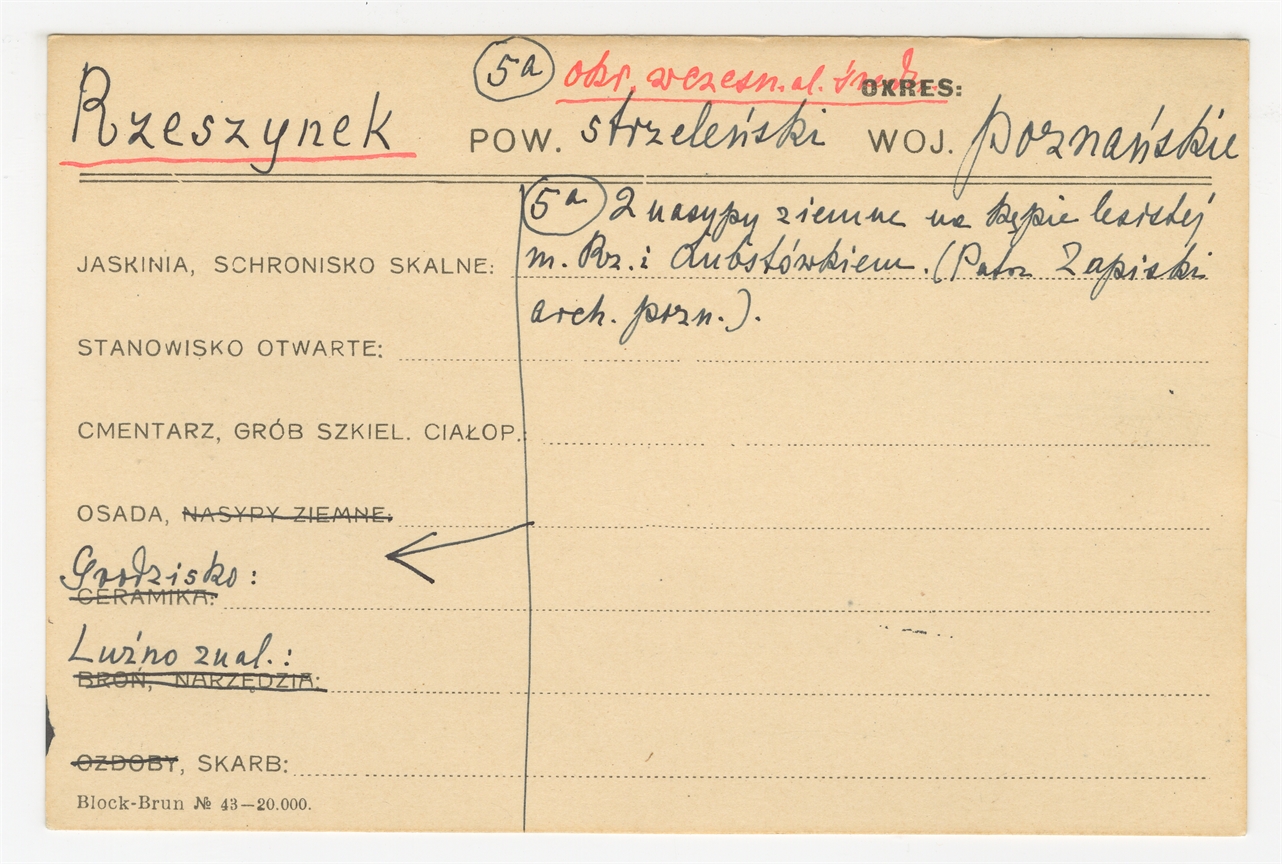 5a okr. wczesn. al. średn. OKRES:
Rzeszynek POW. strzeleński WOJ. poznańskie
5a 2 nasypy ziemne na kępie lesistej
JASKINIA, SCHRONISKO SKALNE: m. Rz. i Lubstówkiem. (Patrz Zapiski
arch. pozn.).
STANOWISKO OTWARTE:
CMENTARZ, GRÓB SZKIEL. CIAŁOP.:
OSADA, NASYPY ZIEMNE:
Grodzisko:
CERAMIKA:
Luźno znal.:
BROŃ, NARZĘDZIA:
OZDOBY, SKARB:
Block-Brun № 43—20.000.